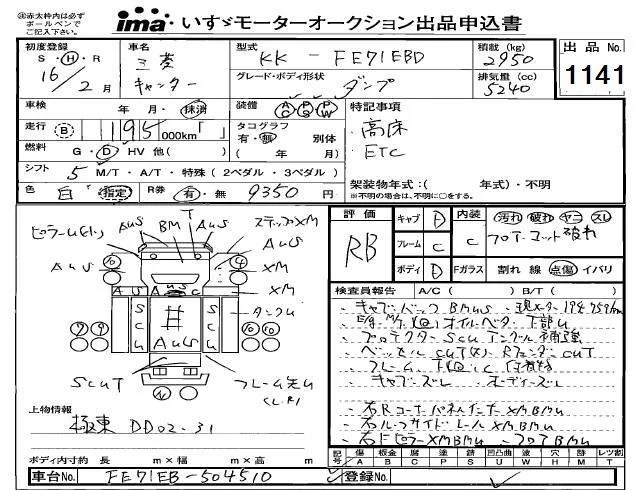 ㊟赤太枠内は必ず
ボールペンで
ご記入下さい。
ima いすゞモーターオークション出品申込書
初度登録 車名 型式 KK - FE71EBD 積載 (kg) 2950 出品 No.
S・H・R 16/2月 三菱 キャンター グレード・ボディ形状 ダンプ 排気量 (cc) 5240 1141
車検 年 月・抹消 装備 AC PS PW 特記事項
走行 B 195 000km「 」 タコグラフ 有・無 別体 高床
燃料 G・D HV 他( ) ( 年 月) ETC
シフト 5 M/T・A/T・特殊(2ペダル・3ペダル) 架装物年式:( 年式)・不明
色 白 指定 R券 有・無 9350 円 ※不明の場合は、不明に○をする。
評価 RB キャブ D 内装 C 汚れ 破れ ヤニ スレ
フレーム C フロアーコット破れ
ボディ D Fガラス 割れ 線 点傷 イバリ
検査員報告 A/C( ) B/T( )
ピラーム AUS BM T AUS ステップXM
AUS AUS XM
XM
AUS SCU # SCU AUS タンクU
SCUT フレーム先U
(L,R)
、キャブバック BMUS
、プロテクターSCU アングル補強
、フレーム
、キャブズレ 、ボディーズレ
、右Rコーナーパネルインナー XMBMU
、右ルーフサイドレール XMBMU
、右FピラーXMBMU 、フロアBMU
上物情報
極東 DD02-31
ボディ内寸約 長 m×幅 m×高 m
記号 傷 板金 腐 塗 錆 凹凸曲 波 穴 跡 レツ割
A B C P S U W H M T
車台No. FE71EB-504510 登録No.